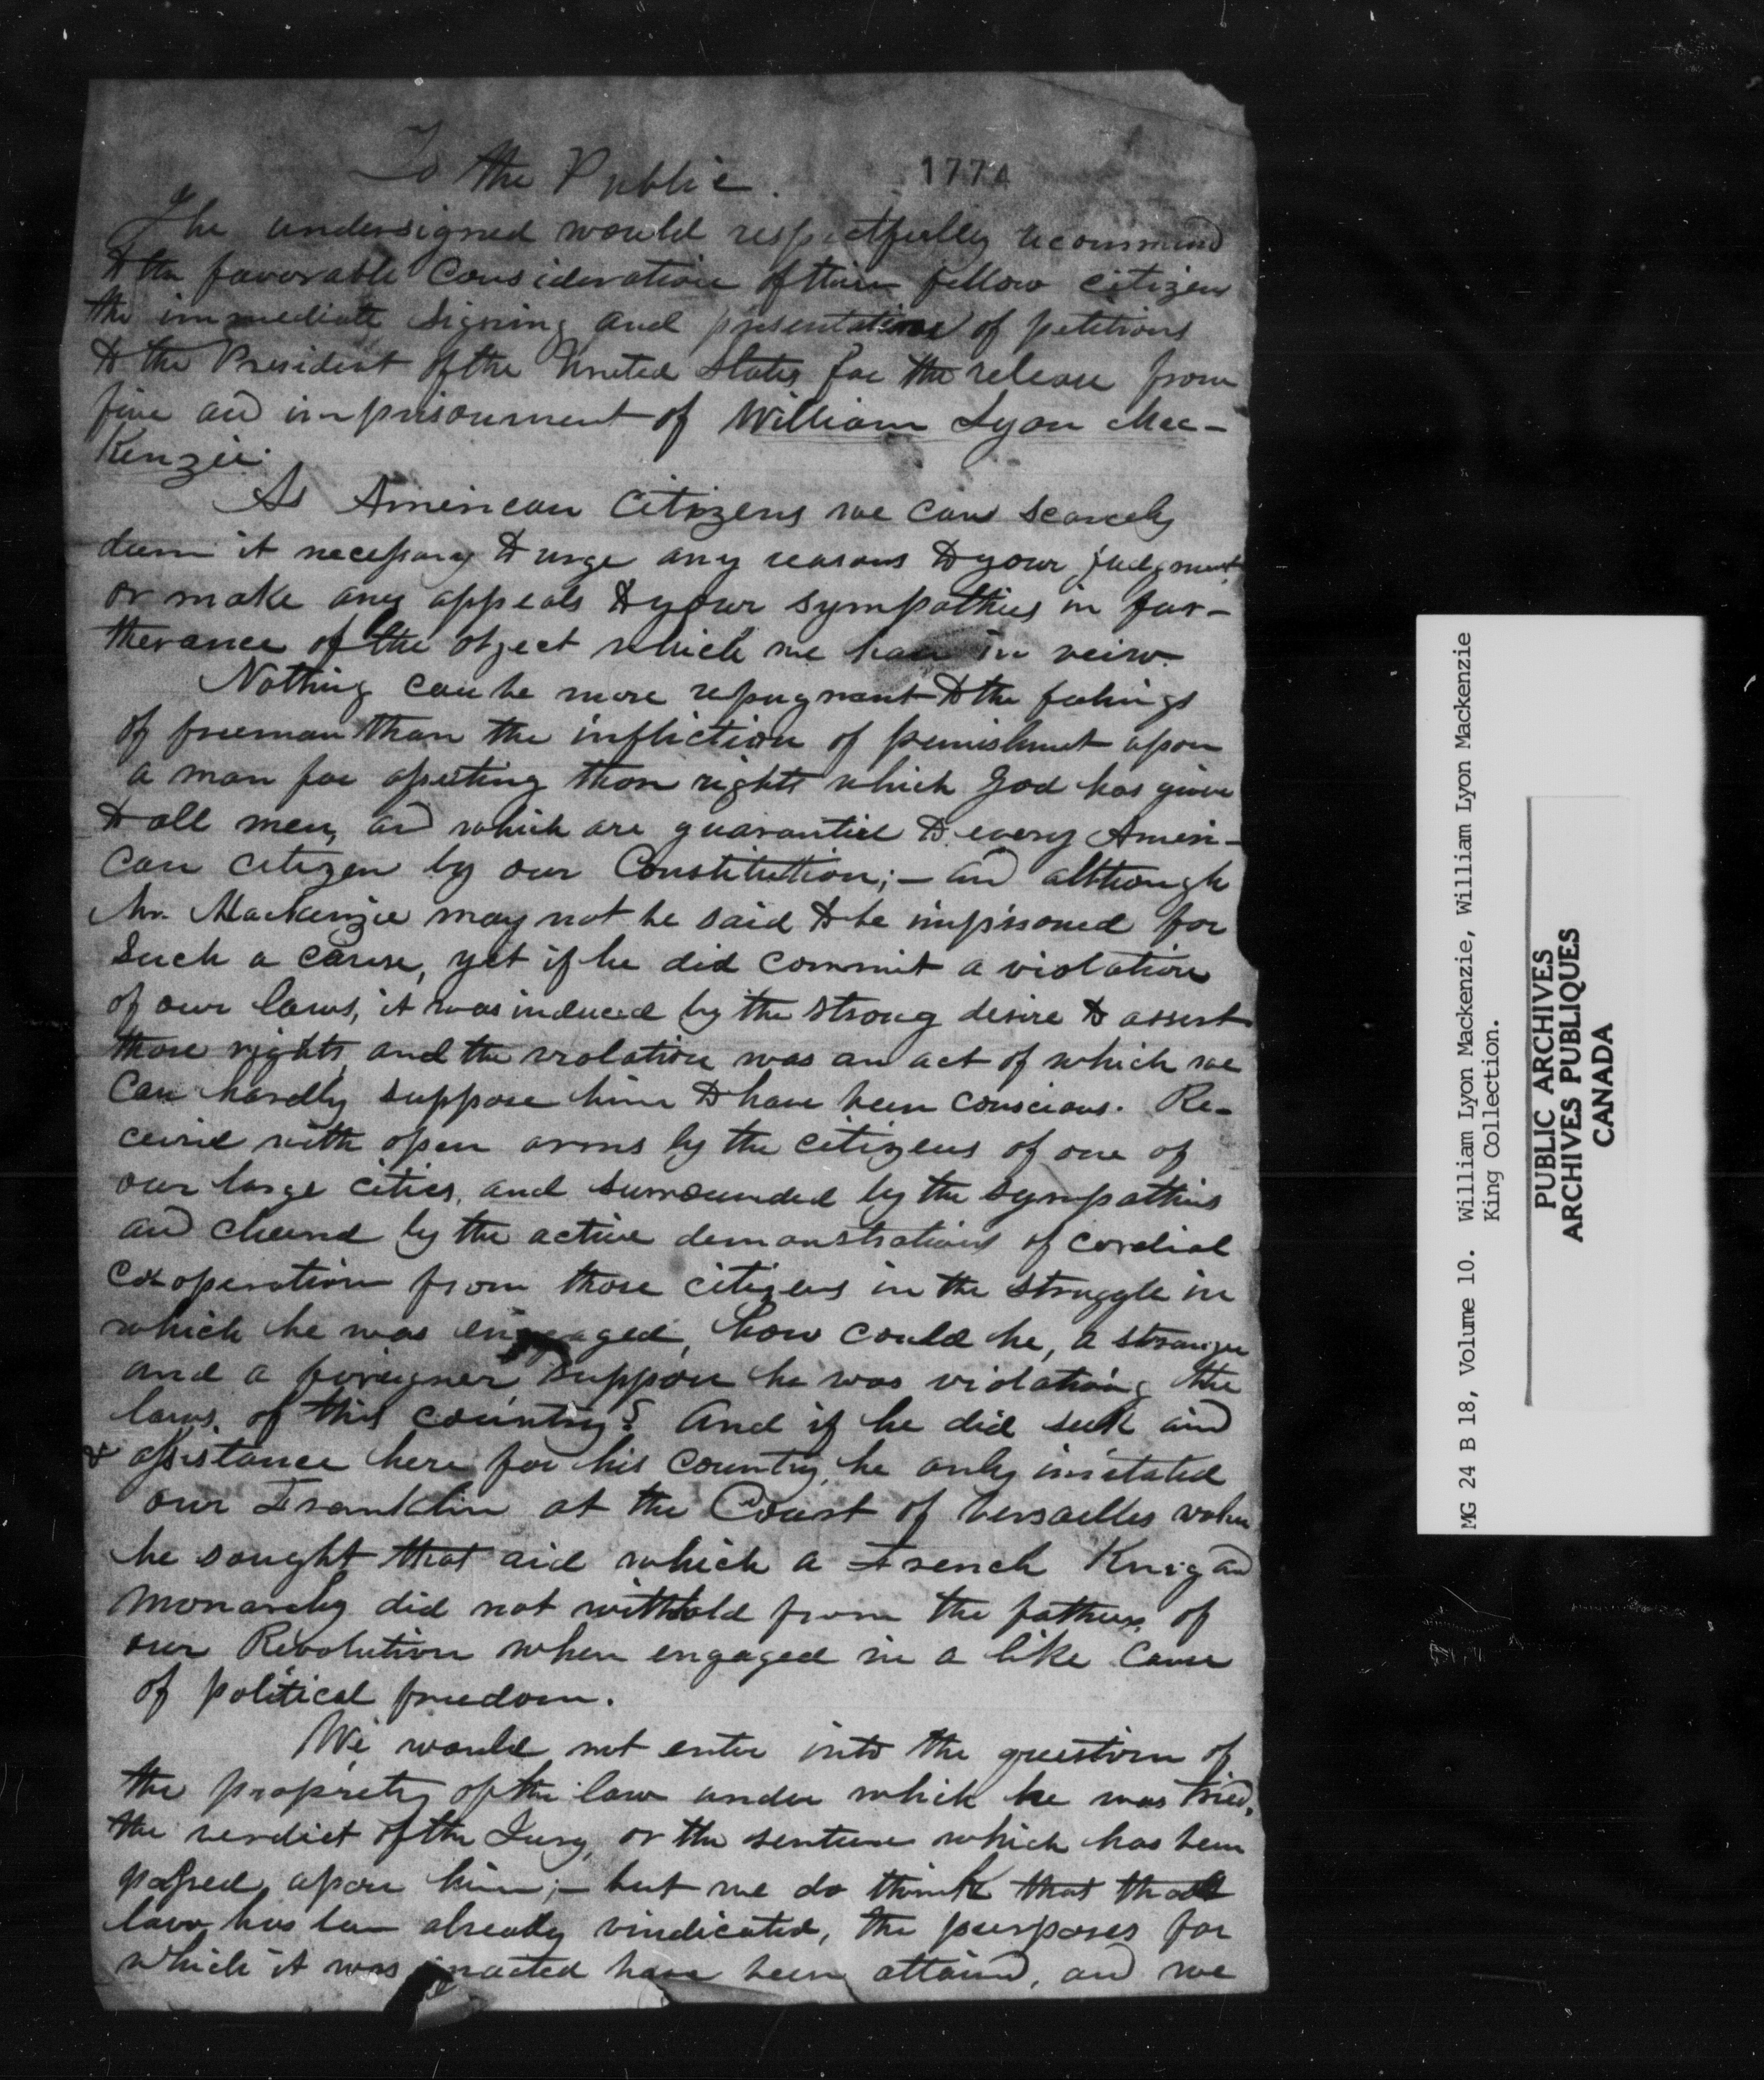 To the Public.
1774
The undersigned would respectfully recommend
to the favorable Consideration of their fellow citizens
the immediate signing and presentations of petitions
to the President of the United States for the release from
fine and imprisonment of William Lyon Mac-
Kenzie.
As American Citizens we can scarcely
deem it necessary to urge any reasons to your judgment
or make any appeals to your sympathies in fur-
therance of the object which we have in veiw.
Nothing can be more repugnant to the feelings
of freeman than the infliction of punishment upon
a man for asserting those rights which God has given
to all men, and which are guarantied to every Ameri-
can citizen by our Constitution; - and although
Mr. Mackenzie may not be said to be imprisoned for
such a cause, yet if he did commit a violation
of our laws, it was induced by the strong desire to assert
those rights, and the violation was an act of which we
can hardly suppose him to have been conscious. Re-
ceived with open arms by the citizens of one of
our large cities, and surrounded by the sympathies
and cheered by the active demonstrations of cordial
cooperation from those citizens in the struggle in
which he was engaged, how could he, a stranger
and a foreigner, suppose he was violating the
laws of this country? And if he did seek aid
& assistance here for his country, he only imitated
our Franklin at the Court of Versailles when
he sought that aid which a French King and
Monarchy did not withhold from the fathers of
our Revolution when engaged in a like cause
of political freedom.
We would not enter into the question of
the propriety of the law under which he was tried,
the verdict of the Jury, or the sentence which has been
passed upon him; - but we do think that that
law has been already vindicated, the purposes for
which it was enacted have been attained, and we
MG 24 B 18, Volume 10. William Lyon Mackenzie, William Lyon Mackenzie
King Collection.
PUBLIC ARCHIVES
ARCHIVES PUBLIQUES
CANADA